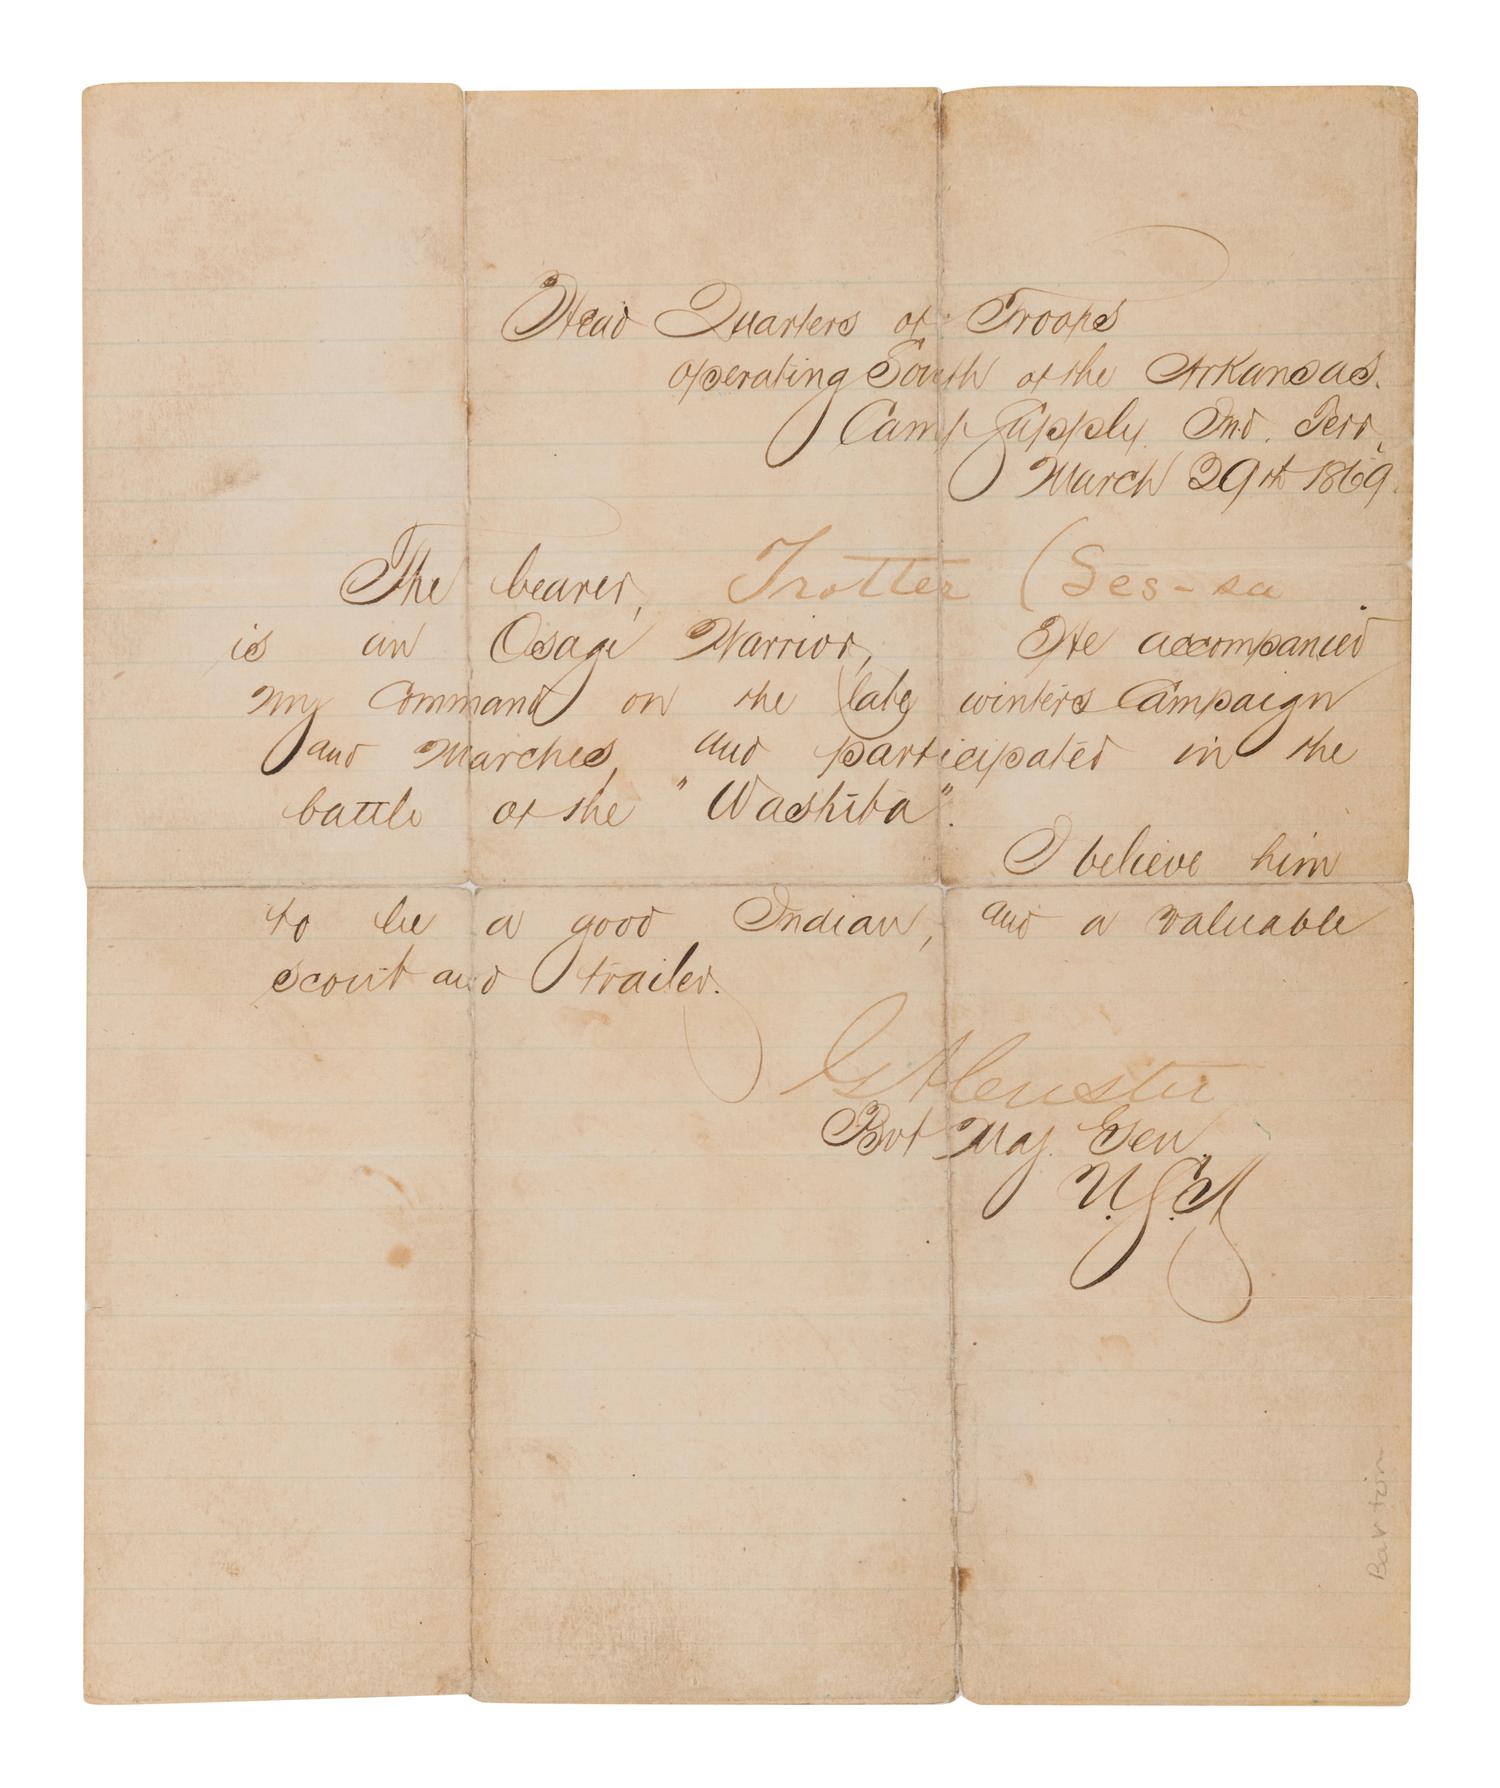 Head Quarters of Troops
operating South of the Arkansas.
Camp Supply. Ind. Terr,
March 29th 1869.
The bearer, Trotter (Ses-sa
is an Osage Warrior, He accompanied
my Command on the late winters Campaign
and Marches, and participated in the
battle of the "Washita".
I believe him
to be a good Indian, and a valuable
scout and trailer.
GACuster
Bvt Maj. Gen.
U.S.A
Bartoin